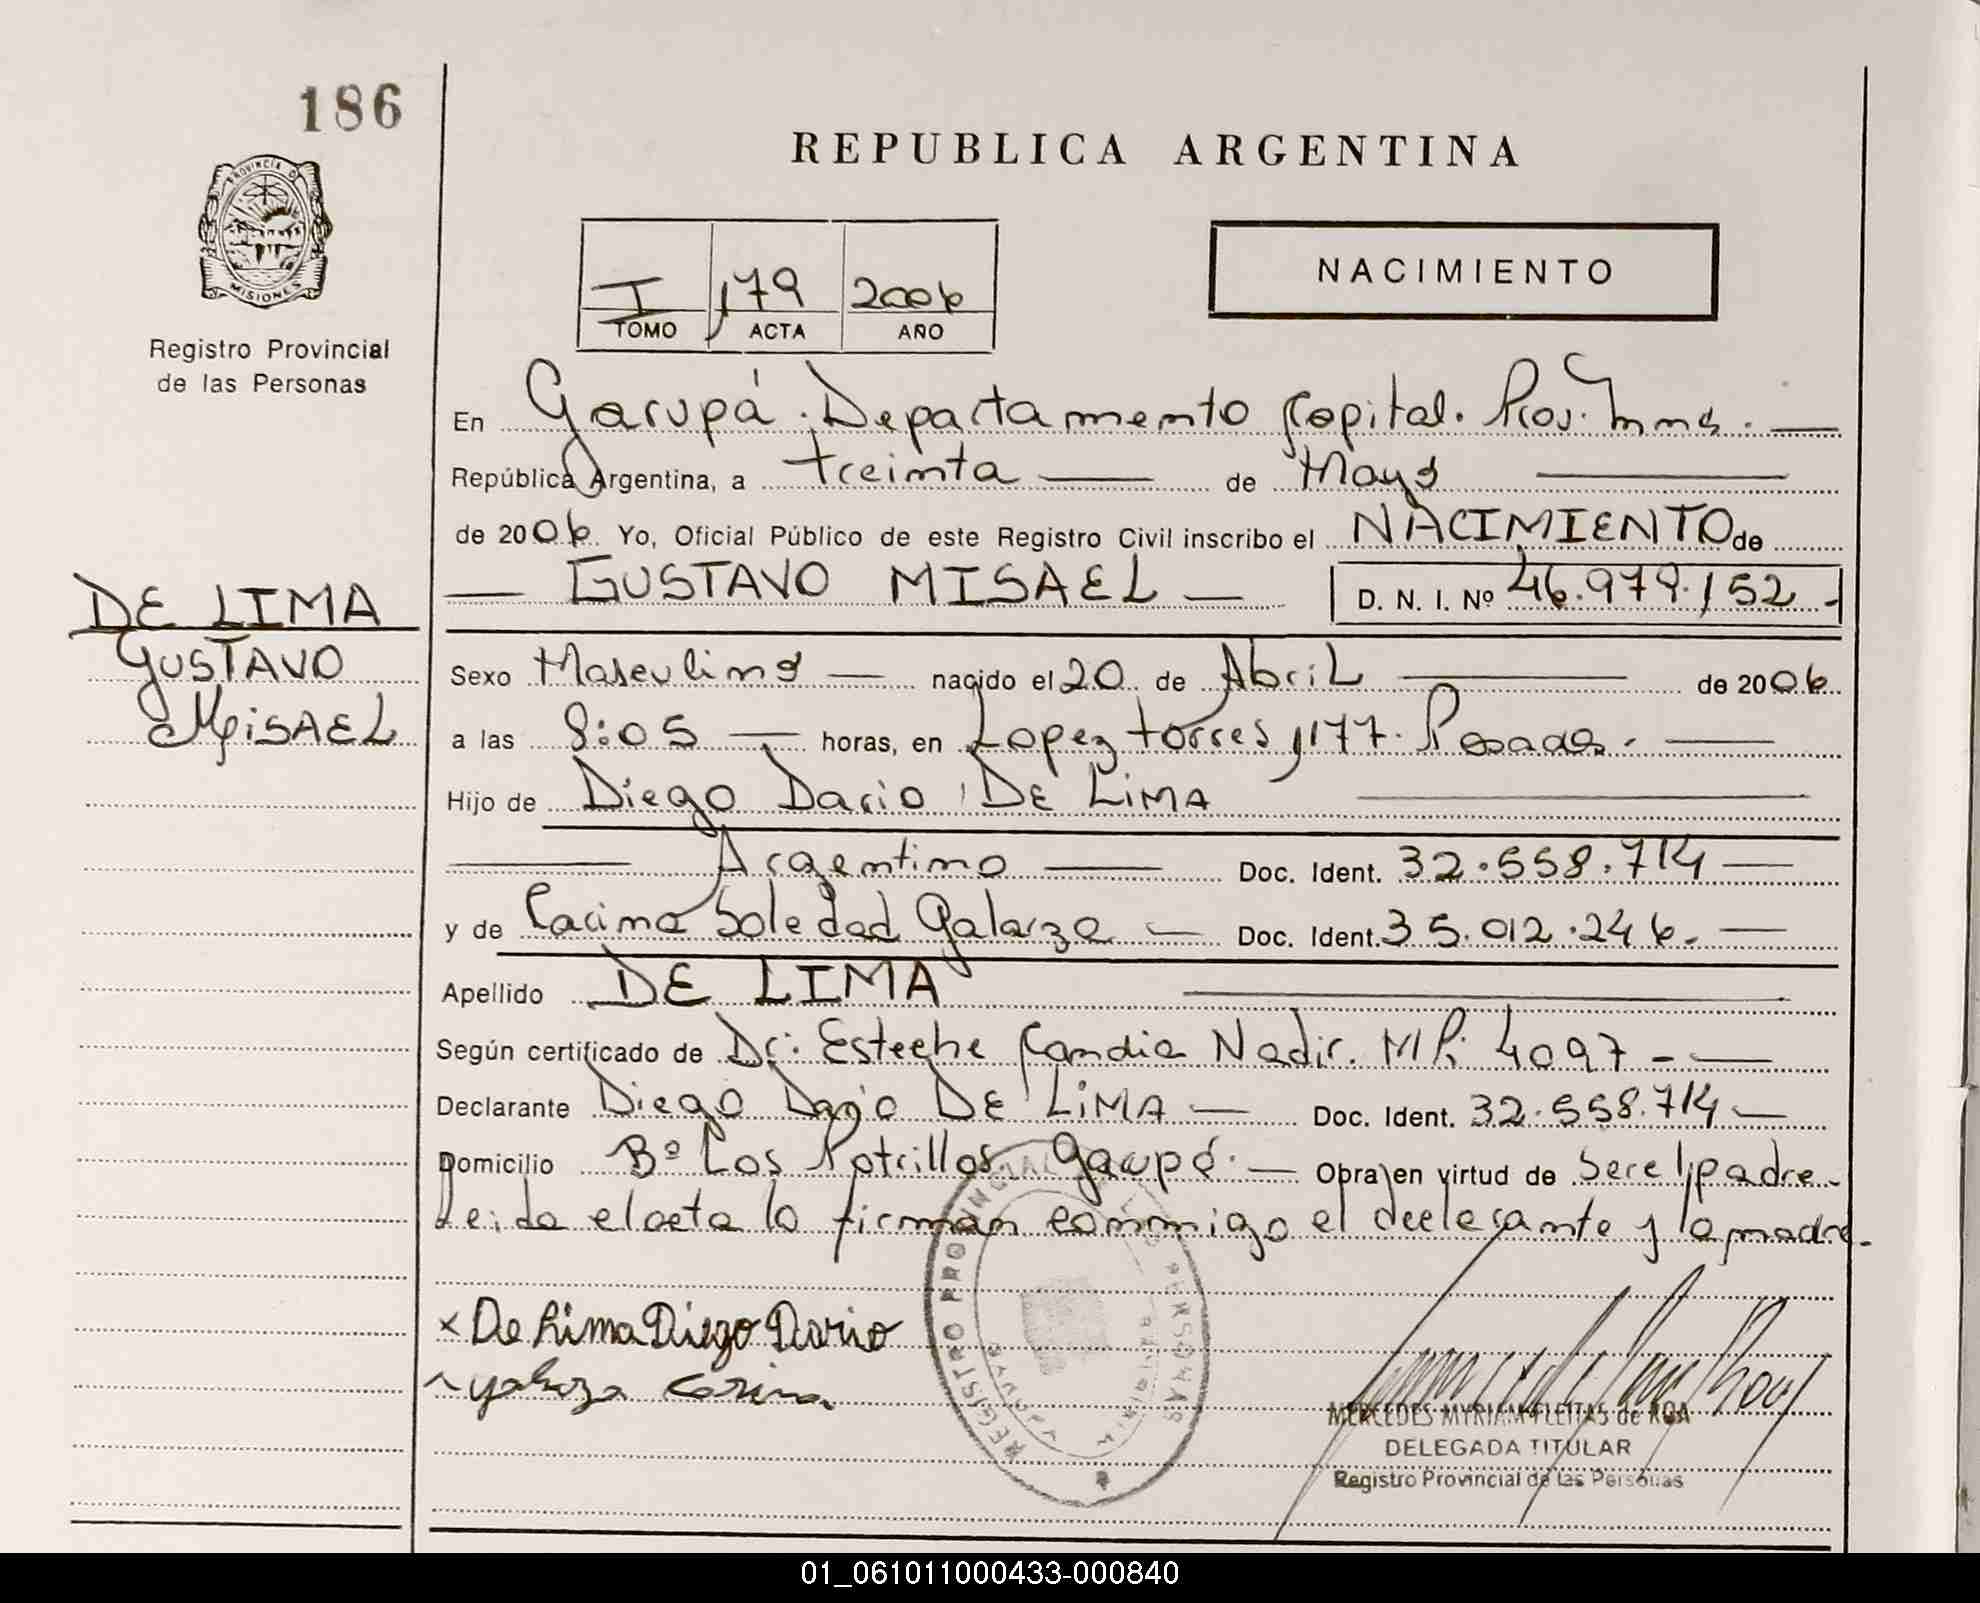 186
REPUBLICA ARGENTINA
PROVINCIA D
MISIONES
Registro Provincial
de las Personas
I 179 2006
TOMO ACTA AÑO
NACIMIENTO
En Garupá. Departamento Capital. Prov. Mnes. —
República Argentina, a treinta — de Mayo —
de 2006 Yo, Oficial Público de este Registro Civil inscribo el NACIMIENTO de
— GUSTAVO MISAEL — D. N. I. Nº 46.979.152 -
DE LIMA
GUSTAVO
MISAEL
Sexo Masculino — nacido el 20 de Abril — de 2006
a las 8:05 — horas, en Lopez torres 1177. Posadas. —
Hijo de Diego Dario DE LIMA —
— Argentino — Doc. Ident. 32.558.714 —
y de Carina Soledad Galarza — Doc. Ident. 35.012.246. —
Apellido DE LIMA —
Según certificado de Dr: Esteche Candia Nadir. MP: 4097 - —
Declarante Diego Dario DE LIMA — Doc. Ident. 32.558.714 —
Domicilio Bº Los Potrillos. Garupá. — Obra en virtud de ser el padre.
Leida el acta la firman conmigo el declarante y la madre.
x De Lima Diego Dario
Galarza Carina
REGISTRO PROVINCIAL PERSONAS
MERCEDES MYRIAM FLEITAS de ROA
DELEGADA TITULAR
Registro Provincial de las Personas
01_061011000433-000840